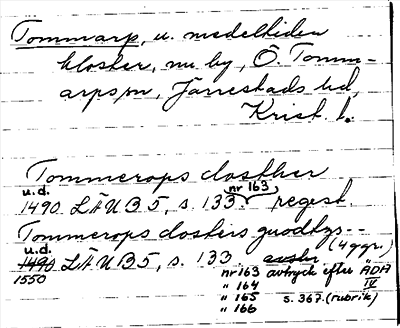 Tommarp, u. medeltiden
kloster, nu by, Ö. Tomm-
arps sn, Järrestads hd,
Krist. l.
Tommerops closther
u.d. nr 163
1490 LÄUB 5, s. 133. regest.
Tommerops closters guodtzs--
u.d. (4 ggr.)
1490 LÄUB 5, s. 133.
1550 nr 163 avtryck efter ÄDA
" 164 IV
" 165 s. 367. (rubrik)
" 166